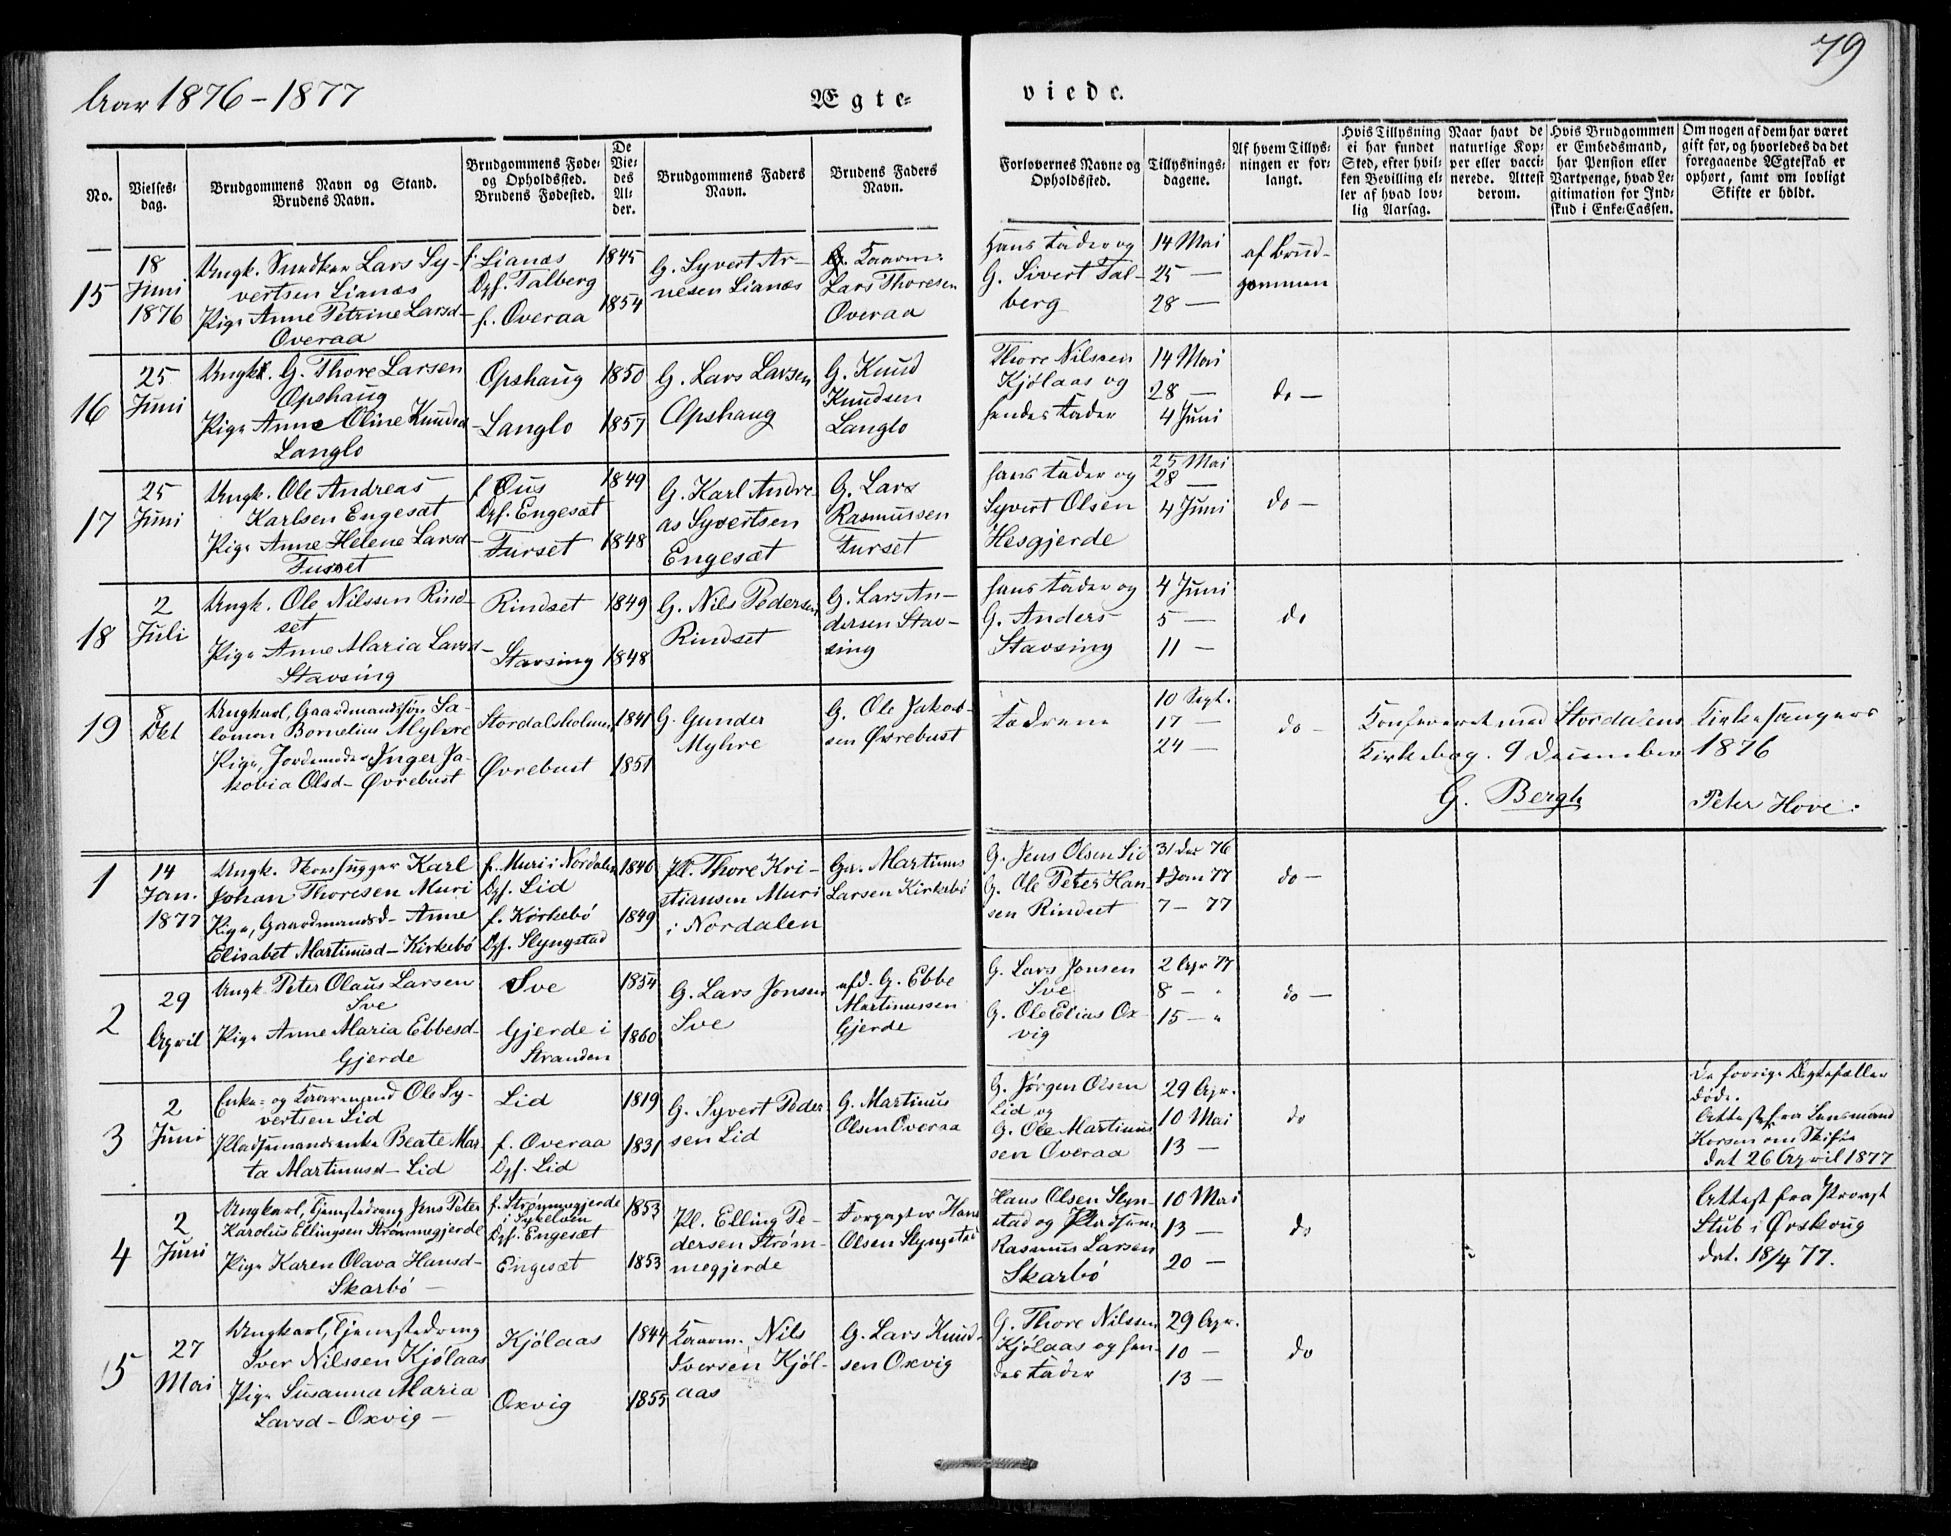 Aar 1876-1877
Ægte=
viede.
79
No.
Vielses=
dag.
Brudgommens Navn og Stand.
Brudens Navn.
Brudgommens Føde=
og Opholdssted.
Brudens Fødested.
De
Vie=
des
Al=
der.
Brudgommens Faders
Navn.
Brudens Faders
Navn.
Forlovernes Navne og
Opholdssted.
Tillysnings=
dagene.
Af hvem Tillys=
ningen er for=
langt.
Hvis Tillysning
ei har fundet
Sted, efter hvil=
ken Bevilling el=
ler af hvad lov=
lig Aarsag.
Naar havt de
naturlige Kop=
per eller vacci=
nerede. Attest
derom.
Hvis Brudgommen
er Embedsmand,
har Pension eller
Vartpenge, hvad Le=
gitimation for Ind=
skud i Enke=Cassen.
Om nogen af dem har været
gift før, og hvorledes da det
foregaaende Ægteskab er
ophørt, samt om lovligt
Skifte er holdt.
15
18
Juni
1876
Ungk. Snedker Lars Sy-
vertsen Lianæs
Pige Anne Petrine Larsd-
Overaa
f. Lianæs
Opf. Talberg
f. Overaa
1845
1854
G. Syvert Ar-
nesen Lianæs
Kaarm.
Lars Thoresen
Overaa
hans Fader og
G. Sivert Tal-
berg
14 Mai
25 —
28 —
af Brud-
gommen
16
25
Juni
Ungk. G. Thore Larsen
Opshaug
Pige Anne Oline Knudsd-
Langlo
Opshaug
Langlo
1850
1857
G. Lars Larsen
Opshaug
G. Knud
Knudsen
Langlo
Thore Nilssen
Kjølaas og
hendes Fader
14 Mai
28 —
4 Juni
do —
17
25
Juni
Ungk. Ole Andreas
Karlsen Engesæt
Pige Anne Helene Larsd-
Furset
f. Øus
Opf. Engesæt
Furset
1849
1848
G. Karl Andre-
as Syvertsen
Engesæt
G. Lars
Rasmussen
Furset
hans Fader og
Syvert Olsen
Hesgjerde
25 Mai
28 —
4 Juni
do —
18
2
Juli
Ungk. Ole Nilssen Rind-
set
Pige Anne Maria Larsd-
Stavsing
Rindset
Stavsing
1849
1848
G. Nils Pedersen
Rindset
G. Lars An-
dersen Stav-
sing
hans Fader og
G. Anders
Stavsing
4 Juni
5 —
11 —
do
19
8
Okt
Ungkarl, Gaardmandssøn Sa-
lomon Bornelius Myhre
Pige, Jordemoder Inger Ja-
kobia Olsd- Øvrebust
Stordalsholmen
Øvrebust
1841
1851
G. Gunder
Myhre
G. Ole Jakob-
sen Øvrebust
Fædrene
10 Sept.
17 —
24 —
do —
Konfereret med Stordalens Kirkesangers
Kirkebog. 9 December 1876
G. Bergh
Peter Hove.
1
14
Jan.
1877
Ungk. Skomager Karl
Johan Thoresen Muri
Pige, Gaardmandsd- Anne
Elisabet Martinusd- Kirkebø
f. Muri i Nordalen
Opf. Lid
f. Kirkebø
Opf. Slyngstad
1846
1849
Pl. Thore Kri-
stiansen Muri
i Nordalen
Gm. Martinus
Larsen Kirkebø
G. Jens Olsen Lid
G. Ole Peter Han-
sen Rindset
31 Dec 76
1 Jan 77
7 - 77
do —
2
29
April
Ungk. Peter Olaus Larsen
Sve
Pige Anne Maria Ebbesd-
Gjerde
Sve
Gjerde i
Stranden
1854
1860
G. Lars Jonsen
Sve
afd. G. Ebbe
Martinussen
Gjerde
G. Lars Jonsen
Sve
G. Ole Elias Ox-
vig
2 Apr 77
8 — "
15 — "
do —
3
2
Juni
Enke- og Kaarmand Ole Sy-
vertsen Lid
Pladsemandsenke Beate Mar-
ta Martinusd- Lid
Lid
f. Overaa
Opf. Lid
1819
1831
G. Syvert Peder-
sen Lid
G. Martinus
Olsen Overaa
G. Jørgen Olsen
Lid og
G. Ole Martinus-
sen Overaa
29 Apr.
10 Mai
13 —
do
De forrige Ægtefæller
døde.
Attest fra Lensmand
Korsen om Skifte
dat 26 April 1877
4
2
Juni
Ungkarl, Tjenestedreng Jens Peter
Karolus Ellingsen Strømmegjerde
Pige Karen Olava Hansd-
Skarbø —
f. Strømmegjerde
i Sykelven
Opf. Engesæt
Engesæt
1853
1853
Pl. Elling Pe-
dersen Strøm-
megjerde
Forpagter Hans
Olsen Slyngstad
Hans Olsen Slyn-
stad og Pladsem.
Rasmus Larsen
Skarbø
10 Mai
13 —
20 —
do
Attest fra Provst
Stub i Ørskoug
dat. 18/4 77.
5
27
Mai
Ungkarl, Tjenestedreng
Iver Nilssen Kjølaas
Pige Susanna Maria
Larsd- Oxvig —
Kjølaas
Oxvig
1844
1855
Kaarm. Nils
Iversen Kjøl-
aas
G. Lars Knud-
sen Oxvig
G. Thore Nilssen
Kjølaas og hen-
des Fader
29 Apr.
10 —
13 —
do